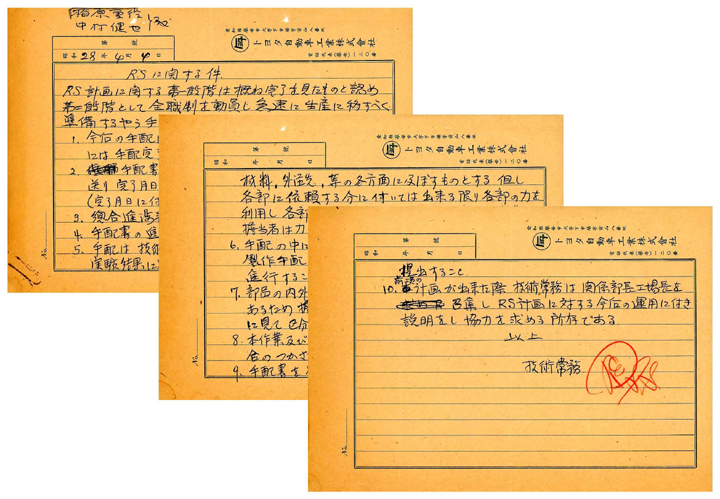 中村健也
愛知県
トヨタ自動車工業株式會社
第 號
昭和 28年 4月 4日
RSに関する件
RS計画に関する第一段階は概ね完了を見たものと認め
第二段階として全職制を動員し急速に生産に移すべく
準備するやう手
1. 今后の手配
には手配完
2. 手配書
送り完了月日
(完了月日に付
3. 綜合進渉表
4. 手配書の進
5. 手配は技術
実験結果に
トヨタ自動車工業株式會社
第 號
昭和 年 月 日
材料,外注,等の各方面に及ぼすものとする 但し
各部に依頼する分に付いては出来る限り各部の力を
利用し各部
担当者は力
6. 手配の中に
製作手配
進行するこ
7. 部局の内外
あるため
に見て
8. 本作業及び
合のつかざ
9. 手配書を
トヨタ自動車工業株式會社
第 號
昭和 年 月 日
提出すること
10. 計画が出来た際 技術常務は関係部長工場長を
召集し RS計画に対する今后の運用に付き
説明をし協力を求める所存である
以上
技術常務
No.
No.
No.